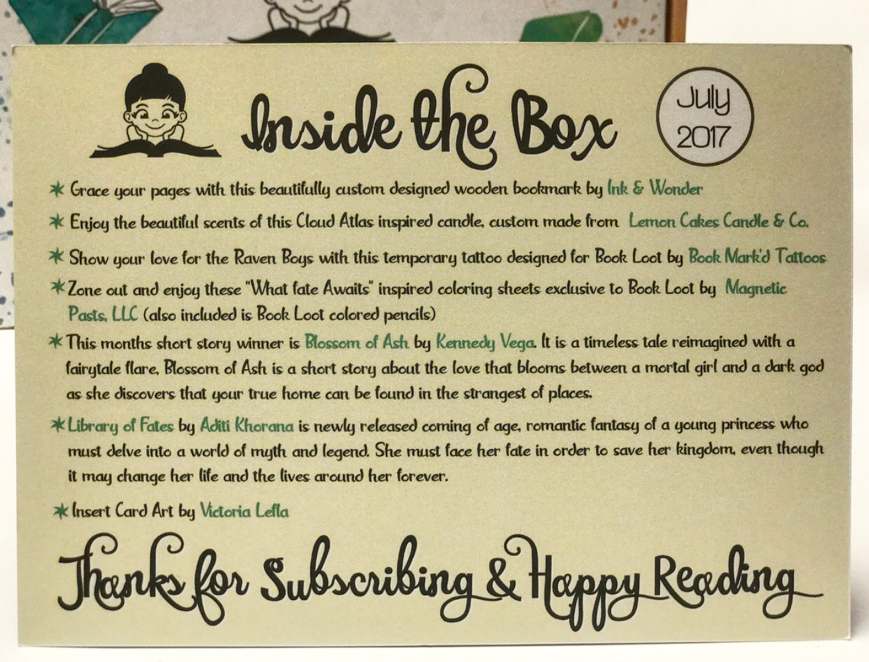 Inside the Box
July
2017
Grace your pages with this beautifully custom designed wooden bookmark by Ink & Wonder
Enjoy the beautiful scents of this Cloud Atlas inspired candle, custom made from Lemon Cakes Candle & Co.
Show your love for the Raven Boys with this temporary tattoo designed for Book Loot by Book Mark'd Tattoos
Zone out and enjoy these "What fate Awaits" inspired coloring sheets exclusive to Book Loot by Magnetic
Pasts, LLC (also included is Book Loot colored pencils)
This months short story winner is Blossom of Ash by Kennedy Vega. It is a timeless tale reimagined with a
fairytale flare, Blossom of Ash is a short story about the love that blooms between a mortal girl and a dark god
as she discovers that your true home can be found in the strangest of places.
Library of Fates by Aditi Khorana is newly released coming of age, romantic fantasy of a young princess who
must delve into a world of myth and legend. She must face her fate in order to save her kingdom, even though
it may change her life and the lives around her forever.
Insert Card Art by Victoria Lefla
Thanks for Subscribing & Happy Reading